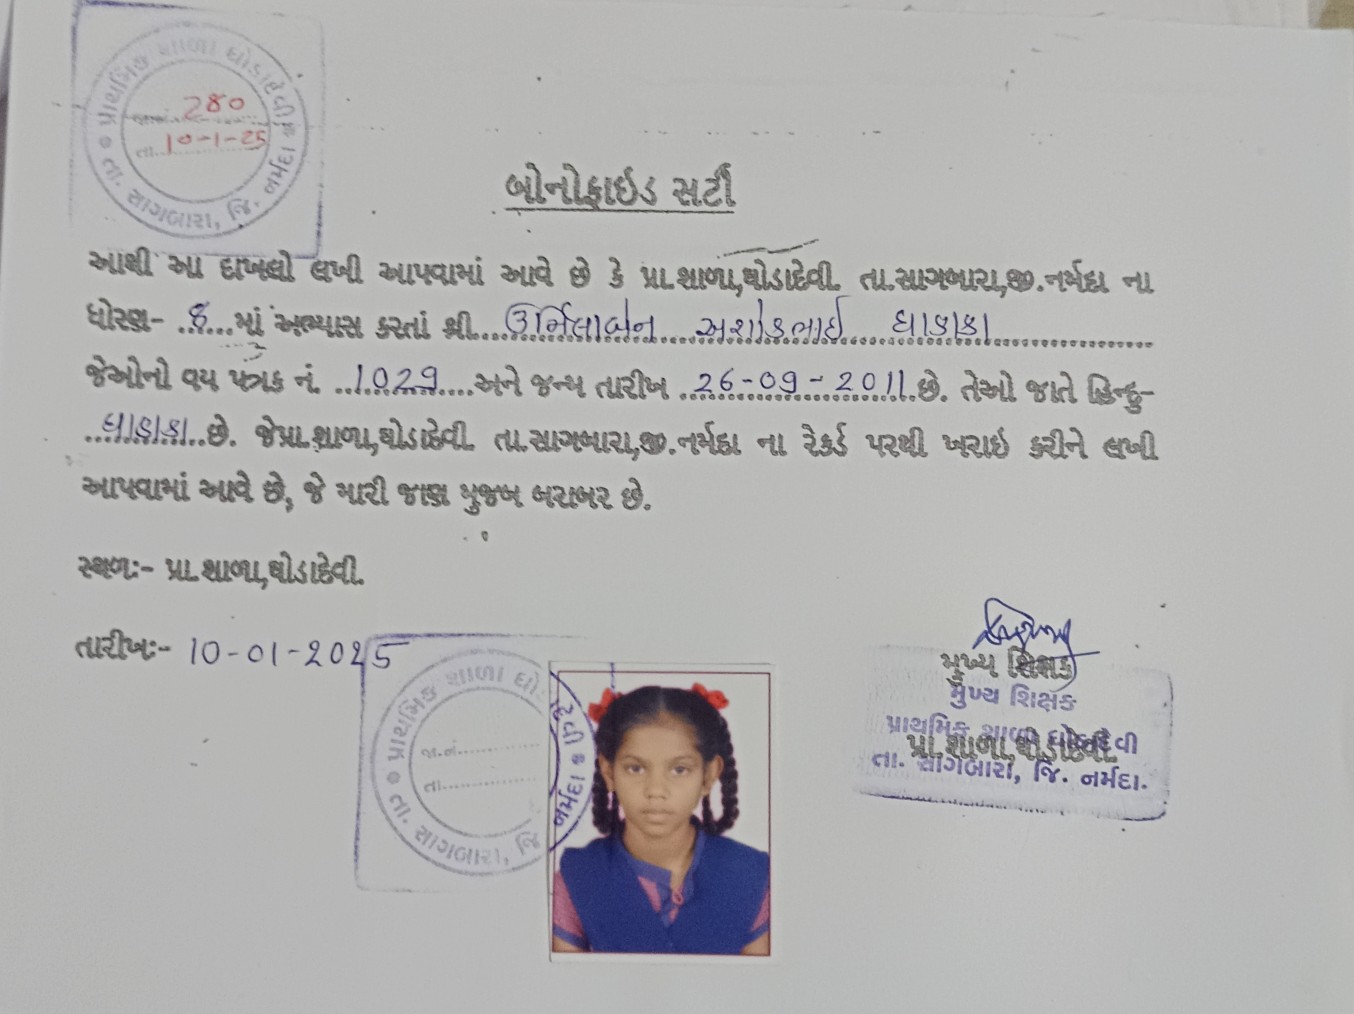 પ્રાથમિક શાળા ઘોડાદેવી
જા.નં. 280
તા. 10-1-25
તા. સાગબારા, જિ. નર્મદા
બોનોફાઇડ સર્ટી
આથી આ દાખલો લખી આપવામાં આવે છે કે પ્રા.શાળા,ઘોડાદેવી. તા.સાગબારા,જી.નર્મદા ના
ધોરણ- ..8...માં અભ્યાસ કરતાં શ્રી....ઉર્મિલાબેન અશોકભાઇ ધાકાકા
જેઓનો વય પત્રક નં. ..1029....અને જન્મ તારીખ ..26-09-2011.છે. તેઓ જાતે હિન્દુ-
છે. જેપ્રા.શાળા,ઘોડાદેવી. તા.સાગબારા,જી.નર્મદા ના રેકર્ડ પરથી ખરાઇ કરીને લખી
આપવામાં આવે છે, જે મારી જાણ મુજબ બરાબર છે.
સ્થળઃ- પ્રા.શાળા,ઘોડાદેવી.
તારીખઃ- 10-01-2025
પ્રાથમિક શાળા ઘો દેવી
જા.નં.
તા.
તા. સાગબારા, જિ નર્મદા
મુખ્ય શિક્ષક
મુખ્ય શિક્ષક
પ્રાથમિક શાળા ઘોડાદેવી
પ્રા.શાળા,ઘોડાદેવી.
તા. સાગબારા, જિ. નર્મદા.